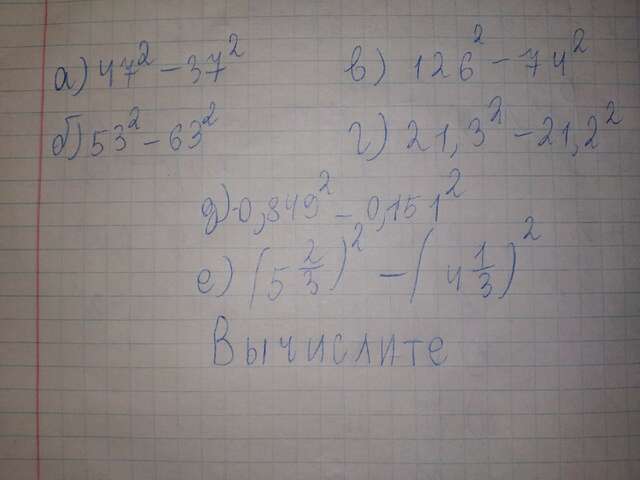 а) 47² - 37²
в) 126² - 74²
б) 53² - 63²
г) 21,3² - 21,2²
д) 0,849² - 0,151²
е) (5 2/3)² - (4 1/3)²
Вычислите